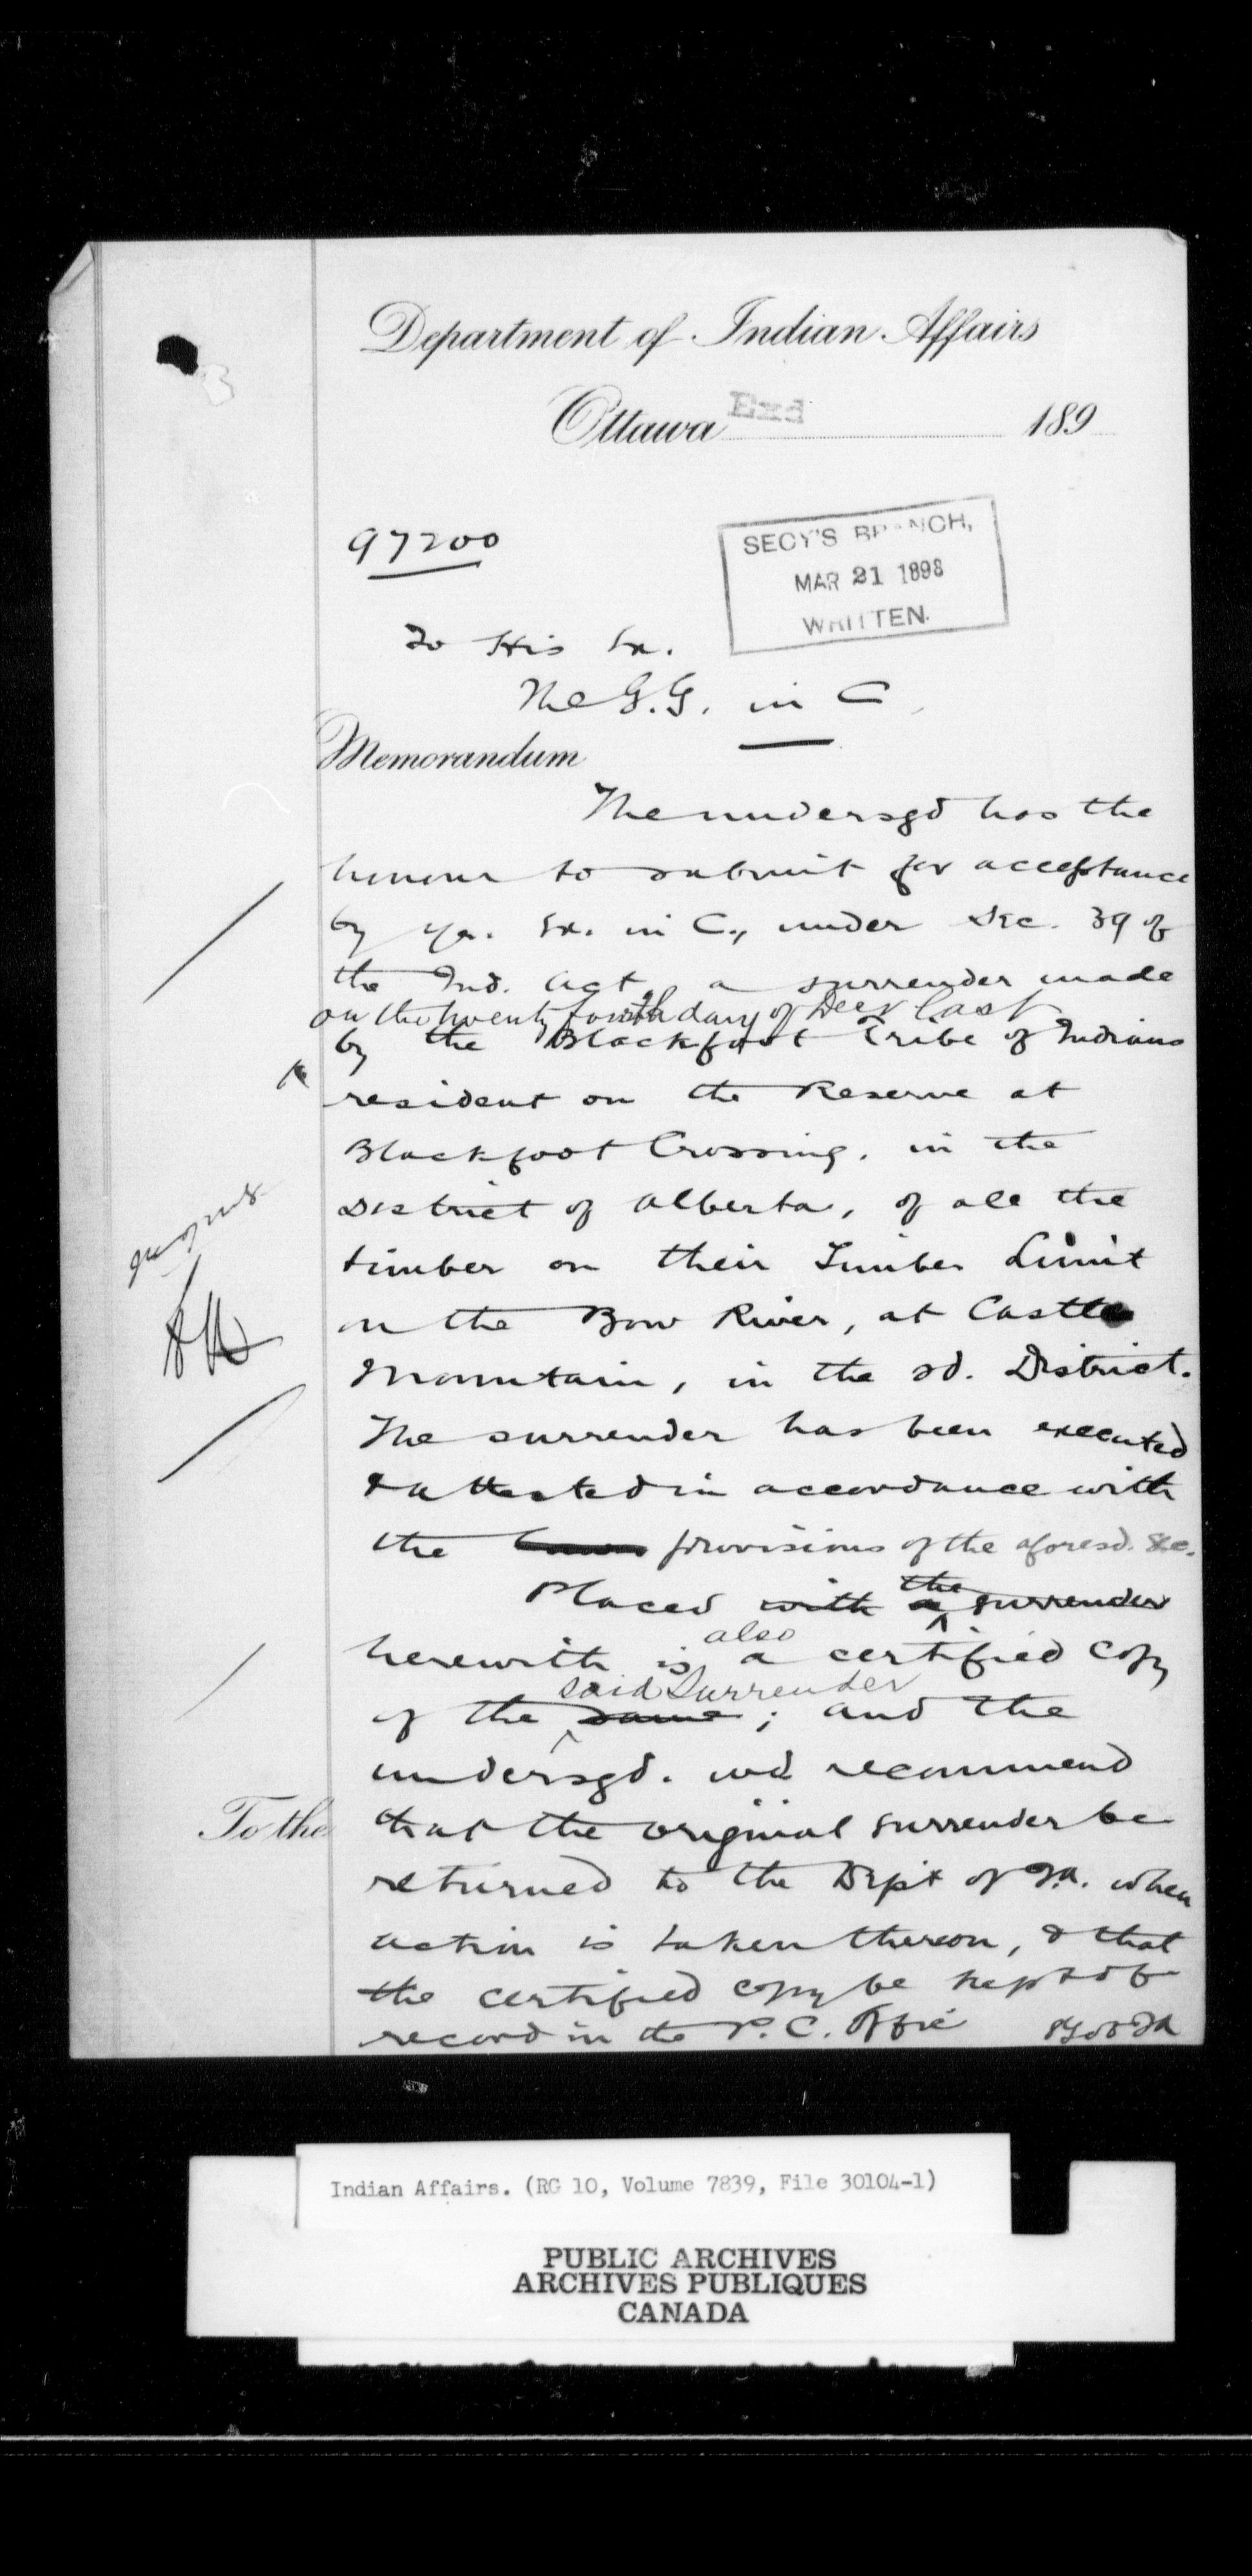 Department of Indian Affairs
Ottawa 189
Exd
SECY'S BRANCH,
MAR 21 1898
WRITTEN.
97200
To His Ex.
The G.G. in C.
Memorandum
The undersgd has the
honour to submit for acceptance
by yr. Ex. in C., under Sec. 39 of
the Ind. Act, a surrender made
on the twenty fourth day of Decr last
by the Blackfoot Tribe of Indians
resident on the Reserve at
Blackfoot Crossing, in the
District of Alberta, of all the
timber on their Timber Limit
on the Bow River, at Castle
Mountain, in the sd. District.
The surrender has been executed
& attested in accordance with
the provisions of the aforesd. Sec.
Placed with the surrender
herewith is also a certified copy
of the said Surrender same; and the
undersgd. wd recommend
To the
that the original surrender be
returned to the Dept of I.A. when
action is taken thereon, & that
the certified copy be kept of
record in the P.C. Office
Indian Affairs. (RG 10, Volume 7839, File 30104-1)
PUBLIC ARCHIVES
ARCHIVES PUBLIQUES
CANADA